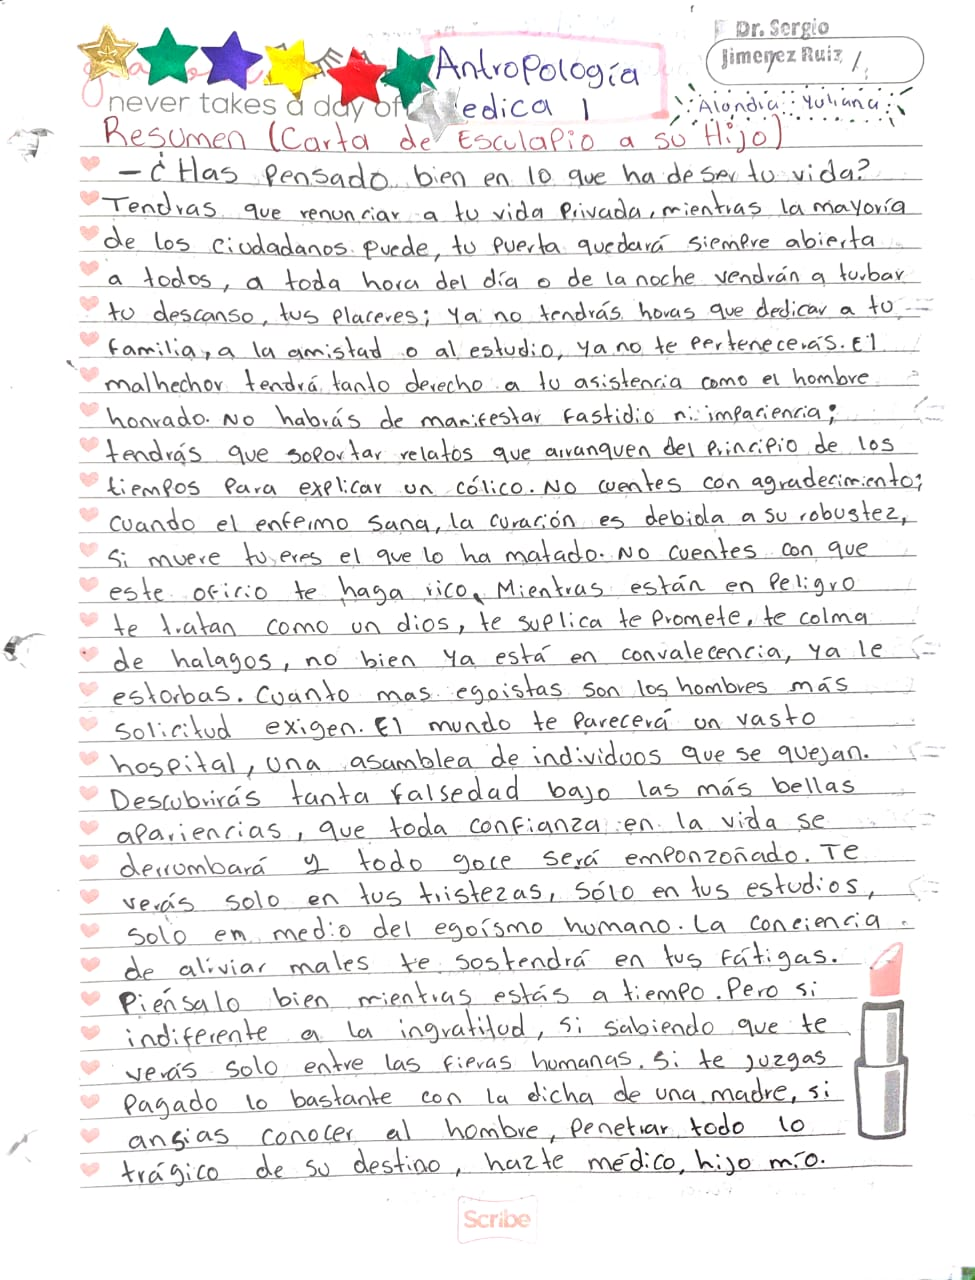 Dr. Sergio
Jimenez Ruiz
Antropología
edica 1
never takes a day of
Alondra Yuliana
Resumen (Carta de Esculapio a su Hijo)
- ¿Has pensado bien en lo que ha de ser tu vida?
Tendras que renunciar a tu vida privada, mientras la mayoría
de los ciudadanos puede, tu puerta quedará siempre abierta
a todos, a toda hora del día o de la noche vendrán a turbar
tu descanso, tus placeres; ya no tendrás horas que dedicar a tu
familia, a la amistad o al estudio, ya no te pertenecerás. El
malhechor tendrá tanto derecho a tu asistencia como el hombre
honrado. No habrás de manifestar fastidio ni impaciencia;
tendrás que soportar relatos que arranquen del principio de los
tiempos para explicar un cólico. No cuentes con agradecimiento;
cuando el enfermo sana, la curación es debida a su robustez,
si muere tu eres el que lo ha matado. No cuentes con que
este oficio te haga rico. Mientras están en peligro
te tratan como un dios, te suplica te promete, te colma
de halagos, no bien ya está en convalecencia, ya le
estorbas. Cuanto mas egoistas son los hombres más
solicitud exigen. El mundo te parecerá un vasto
hospital, una asamblea de individuos que se quejan.
Descubrirás tanta falsedad bajo las más bellas
apariencias, que toda confianza en la vida se
derrumbará y todo goce será emponzoñado. Te
verás solo en tus tristezas, sólo en tus estudios,
solo em medio del egoísmo humano. La conciencia
de aliviar males te sostendrá en tus fátigas.
Piénsalo bien mientras estás a tiempo. Pero si
indiferente a la ingratitud, si sabiendo que te
verás solo entre las fieras humanas. si te juzgas
pagado lo bastante con la dicha de una madre, si
ansias conocer al hombre, penetrar todo lo
trágico de su destino, hazte médico, hijo mío.
Scribe